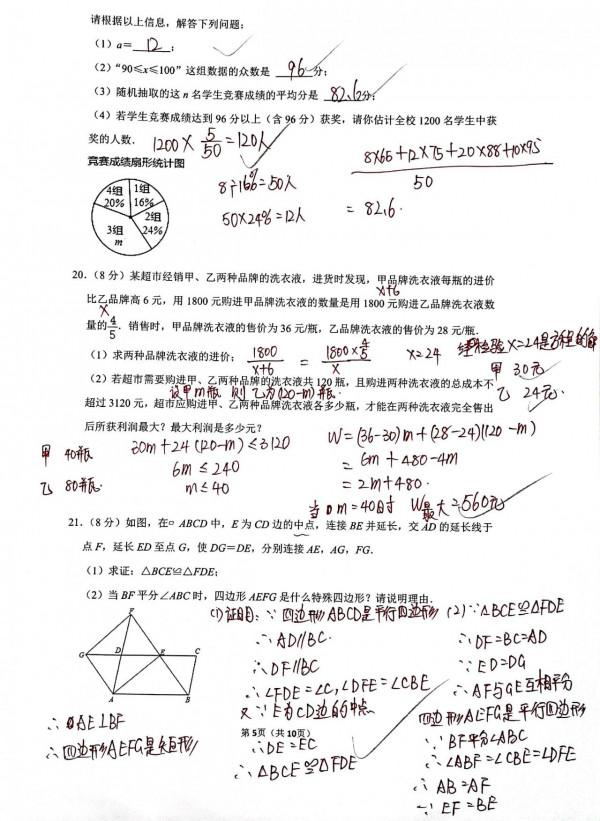 请根据以上信息，解答下列问题：
（1）a= 12 ；
（2）“90≤x≤100”这组数据的众数是 96 分；
（3）随机抽取的这 n 名学生竞赛成绩的平均分是 82.6 分；
（4）若学生竞赛成绩达到 96 分以上（含 96 分）获奖，请你估计全校 1200 名学生中获
奖的人数． 1200× 5/50 =120人
竞赛成绩扇形统计图
4组 20%
1组 16%
2组 24%
3组 m
8÷16%=50人
50×24%=12人
8×65+12×75+20×88+10×95
50
= 82.6.
20．（8 分）某超市经销甲、乙两种品牌的洗衣液，进货时发现，甲品牌洗衣液每瓶的进价
x+6
比乙品牌高 6 元，用 1800 元购进甲品牌洗衣液的数量是用 1800 元购进乙品牌洗衣液数
x
量的4/5．销售时，甲品牌洗衣液的售价为 36 元/瓶，乙品牌洗衣液的售价为 28 元/瓶．
（1）求两种品牌洗衣液的进价； 1800/x+6 = 1800×4/5/x x=24 经检验x=24是方程的解
甲 30元
（2）若超市需要购进甲、乙两种品牌的洗衣液共 120 瓶，且购进两种洗衣液的总成本不
设甲m瓶 则乙为(120-m)瓶.
乙 24元.
超过 3120 元，超市应购进甲、乙两种品牌洗衣液各多少瓶，才能在两种洗衣液完全售出
后所获利润最大？最大利润是多少元？
甲 40瓶
乙 80瓶.
30m+24(120-m)≤3120
6m≤240
m≤40
W=(36-30)m+(28-24)(120-m)
= 6m+480-4m
= 2m+480.
当 m=40时 W最大=560元
21．（8 分）如图，在▱ABCD 中，E 为 CD 边的中点，连接 BE 并延长，交 AD 的延长线于
点 F，延长 ED 至点 G，使 DG=DE，分别连接 AE，AG，FG．
（1）求证：△BCE≌△FDE；
（2）当 BF 平分∠ABC 时，四边形 AEFG 是什么特殊四边形？请说明理由．
F
G D E C
A B
(1)证明：∵四边形ABCD是平行四边形
∴AD//BC.
∴DF//BC
∴∠FDE=∠C,∠DFE=∠CBE
又∵E为CD边的中点
∴DE=EC
∴△BCE≌△FDE
(2)∵△BCE≌△FDE
∴DF=BC=AD
∵ED=DG
∴AF与GE互相平分
四边形AEFG是平行四边形
∵BF平分∠ABC
∴∠ABF=∠CBE=∠DFE
∴AB=AF
∵EF=BE
∴AE⊥BF
∴四边形AEFG是矩形
第 5页（共 10页）